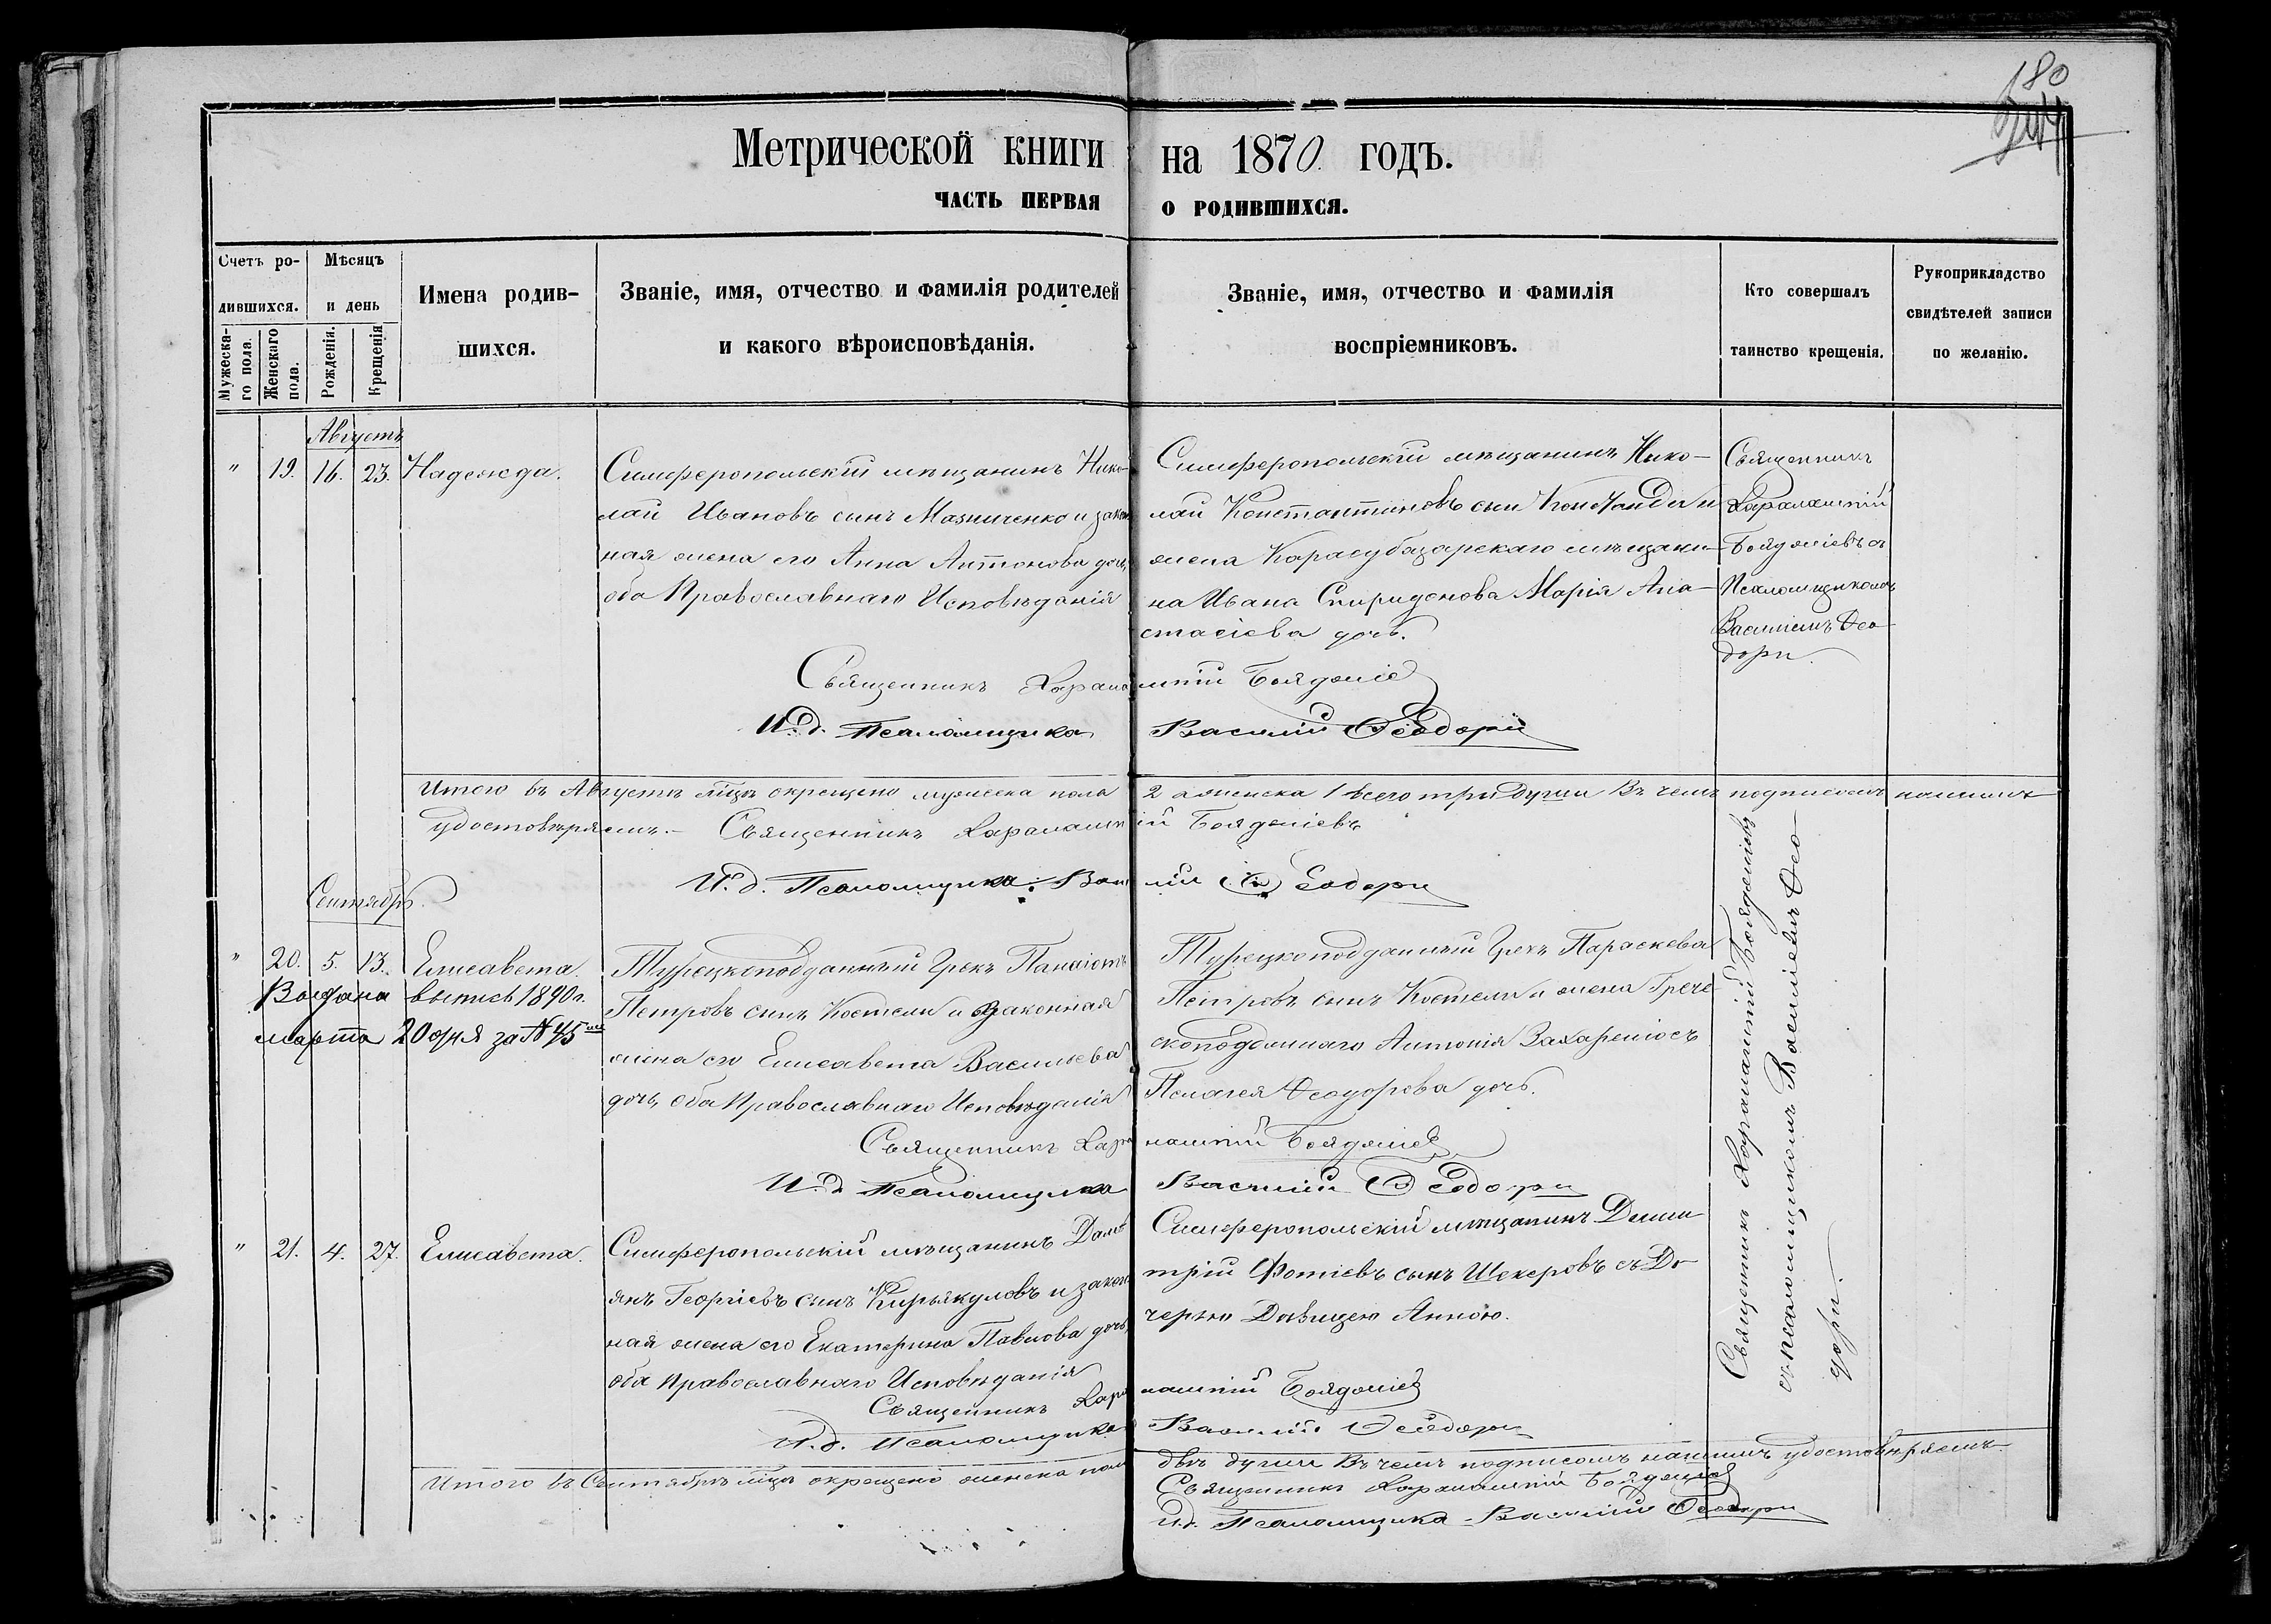 180
Метрической книги на 1870 годъ.
часть первая о родившихся.
Счетъ ро-
дившихся.
Мужеска-
го пола.
Женскаго
пола.
Мѣсяцъ
и день
Рожденія.
Крещенія
Имена родив-
шихся.
Званіе, имя, отчество и фамилія родителей
и какого вѣроисповѣданія.
Званіе, имя, отчество и фамилія
воспріемниковъ.
Кто совершалъ
таинство крещенія.
Рукоприкладство
свидѣтелей записи
по желанію.
Августъ
" 19. 16. 23. Надежда.
Симферопольскій мѣщанинъ Нико-
лай Ивановъ сынъ Мазниченко и закон
ная жена его Анна Антонова дочь,
оба Православнаго Исповѣданія
Симферопольскій мѣщанинъ Нико-
лай Константиновъ сын и
жена Карасубазарскаго мѣщани-
на Ивана Спиридонова Марія Ана-
стасіева дочь.
Священникъ
Харалампій
Бояджіевъ съ
Псаломщикомъ
Василіемъ Ѳео-
дори.
Священникъ Харалампій Бояджіев
И. д. Псаломщика Василій Ѳеодори
Итого въ Августѣ мцѣ окрещено мужеска пола 2 а женска 1 всего три души Въ чемъ подписомъ нашимъ
удостовѣряемъ. — Священникъ Харалампій Бояджіевъ
И. д. Псаломщика: Василій Ѳеодори
Сентябрь.
" 20. 5. 13. Елисавета.
Выдана выпись 1890 г.
марта 20 дня за № 45
Турецкоподданный Грекъ Панаіотъ
Петровъ сынъ Костели и законная
жена его Елисавета Васильева
дочь, оба Православнаго Исповѣданія
Турецкоподданный Грекъ Параскева
Петровъ сынъ Костели и жена Грече
скоподданнаго Антонія Захареніосъ
Пелагея Ѳеодорова дочь.
Священникъ Харалампій Бояджіев
И. д. Псаломщика Василій Ѳеодори
" 21. 4. 27. Елисавета.
Симферопольскій мѣщанинъ Дамі
янъ Георгіевъ сынъ Кирьякуловъ и закон
ная жена его Екатерина Павлова дочь,
оба Православнаго Исповѣданія
Симферопольскій мѣщанинъ Дими
трій Фотіевъ сынъ Шекеровъ съ До
черью Дѣвицею Анною.
Священникъ Харалампій Бояджіев
И. д. Псаломщика Василій Ѳеодори
Священникъ Харалампій Бояджіевъ
съ псаломщикомъ Василіемъ Ѳео-
дори.
Итого въ Сентябрѣ мцѣ окрещено женска пола двѣ души Въ чемъ подписомъ нашимъ удостовѣряемъ.
Священникъ Харалампій Бояджіев
И. д. Псаломщика Василій Ѳеодори